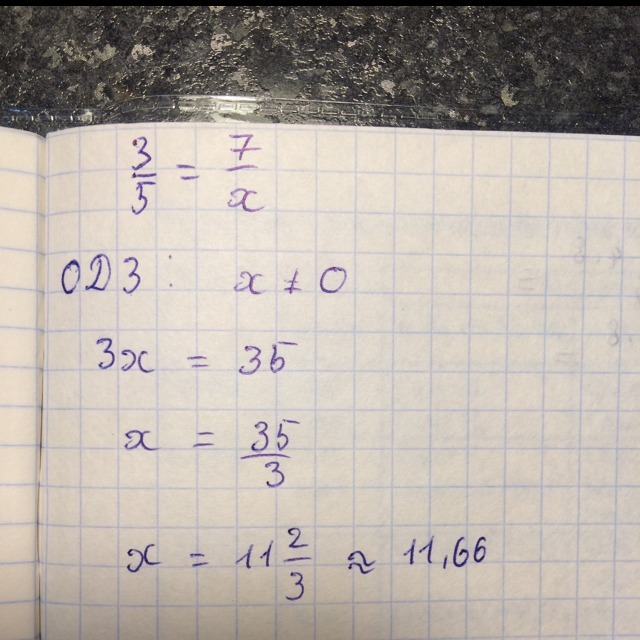 3/5 = 7/x
ОДЗ: x ≠ 0
3x = 35
x = 35/3
x = 11 2/3 ≈ 11,66